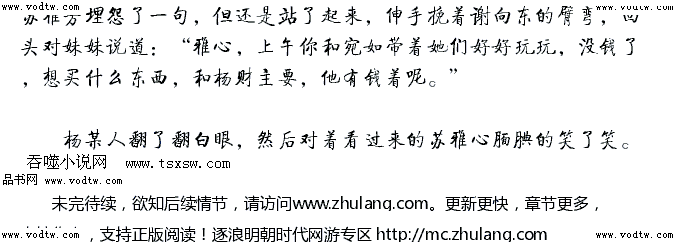 www.vodtw.com www.vodtw.com www.vodtw.com
苏雅芳埋怨了一句，但还是站了起来，伸手挽着谢向东的臂弯，回
头对妹妹说道：“雅心，上午你和宛如带着她们好好玩玩，没钱了
，想买什么东西，和杨财主要，他有钱着呢。”
杨某人翻了翻白眼，然后对着看过来的苏雅心腼腆的笑了笑。
吞噬小说网 www.tsxsw.com
品书网 www.vodtw.com
www.vodtw.com www.vodtw.com
未完待续，欲知后续情节，请访问www.zhulang.com。更新更快，章节更多，
，支持正版阅读！逐浪明朝时代网游专区 http://mc.zhulang.com
www.vodtw.com www.vodtw.com www.vodtw.com